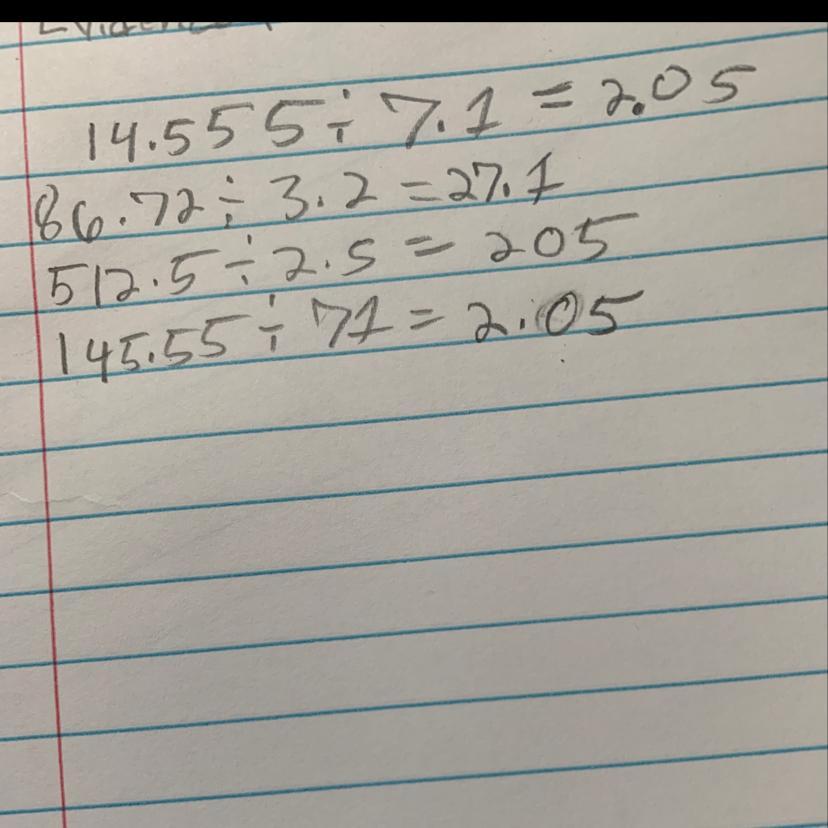 14.555 ÷ 7.1 = 2.05
86.72 ÷ 3.2 = 27.1
512.5 ÷ 2.5 = 205
145.55 ÷ 71 = 2.05